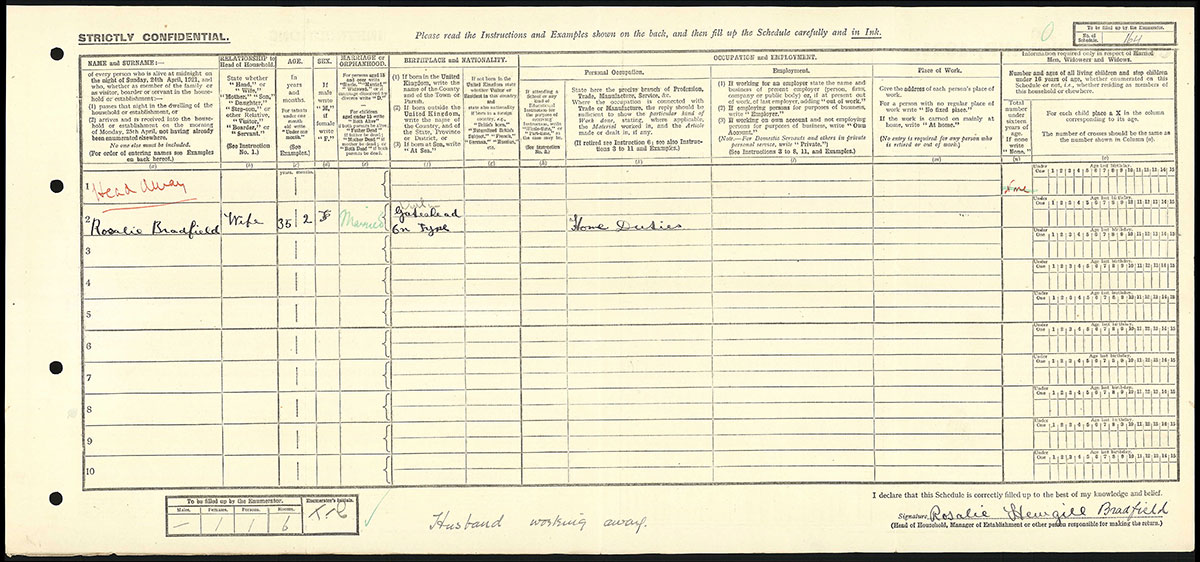 STRICTLY CONFIDENTIAL.
Please read the Instructions and Examples shown on the back, and then fill up the Schedule carefully and in Ink.
To be filled up by the Enumerator.
No. of Schedule. 164
NAME and SURNAME:—
of every person who is alive at midnight on
the night of Sunday, 24th April, 1921, and
who, whether as member of the family or
as visitor, boarder or servant in the house-
hold or establishment:—
(1) passes that night in the dwelling of the
household or establishment, or
(2) arrives and is received into the household
or establishment on the morning
of Monday, 25th April, not having already
been enumerated elsewhere.
No one else must be included.
(For order of entering names see Examples
on back hereof.)
(a)
RELATIONSHIP to
Head of Household.
State whether
"Head," or
"Wife,"
"Mother," "Son,"
"Daughter,"
"Step-son," or
other Relative,
"Visitor,"
"Boarder," or
"Servant."
(See Instruction
No. 1.)
(b)
AGE.
In
years
and
months.
(See
Examples.)
(c)
SEX.
If
male
write
"M."
If
female
write
"F."
(d)
MARRIAGE or
ORPHANHOOD.
(e)
BIRTHPLACE and NATIONALITY.
(1) If born in the United
Kingdom, write the
name of the County
and of the Town or
Parish.
(2) If born outside the
United Kingdom,
write the name of
the Country, and of
the State, Province
or District, or
(3) If born at Sea, write
"At Sea."
(f)
(g)
(h)
OCCUPATION and EMPLOYMENT.
Personal Occupation.
State here the precise branch of Profession,
Trade, Manufacture, Service, &c.
Where the occupation is connected with
Trade or Manufacture, the reply should be
sufficient to show the particular kind of
Work done, stating, where applicable,
the Material worked in, and the Article
made or dealt in, if any.
(If retired see Instruction 6; see also Instruc-
tions 3 to 11 and Examples.)
Employment.
(1) If working for an employer state the name and
business of present employer (person, firm,
company or public body) or, if at present out
of work, of last employer, adding "out of work."
(2) If employing persons for purposes of business,
write "Employer."
(3) If working on own account and not employing
persons for purposes of business, write "Own
Account."
(Note.—For Domestic Servants and others in private
personal service, write "Private.")
(See Instructions 3 to 8, 11, and Examples.)
Place of Work.
Give the address of each person's place of
work.
For a person with no regular place of
work write "No fixed place."
If the work is carried on mainly at
home, write "At home."
(No entry is required for any person who
is retired or out of work.)
(m)
Information required only in respect of Married
Men, Widowers and Widows.
Number and ages of all living children and step children
under 16 years of age, whether enumerated on this
Schedule or not, i.e., whether residing as members of
this household or elsewhere.
Total
number
under
sixteen
years of
age.
If none
write
"None."
(n)
For each child place a X in the column
corresponding to its age.
The number of crosses should be the same as
the number shown in Column (n).
(o)
years. months.
Under One
Age last birthday.
1 2 3 4 5 6 7 8 9 10 11 12 13 14 15
1 Head Away
2 Rosalie Bradfield Wife 35 2 F Married Gateshead
on Tyne
Home Duties
3
4
5
6
7
8
9
10
To be filled up by the Enumerator.
Enumerator's Initials.
Males. Females. Persons. Rooms.
— 1 1 6
Husband working away.
I declare that this Schedule is correctly filled up to the best of my knowledge and belief.
Signature Rosalie Hemgill Bradfield
(Head of Household, Manager of Establishment or other person responsible for making the return.)